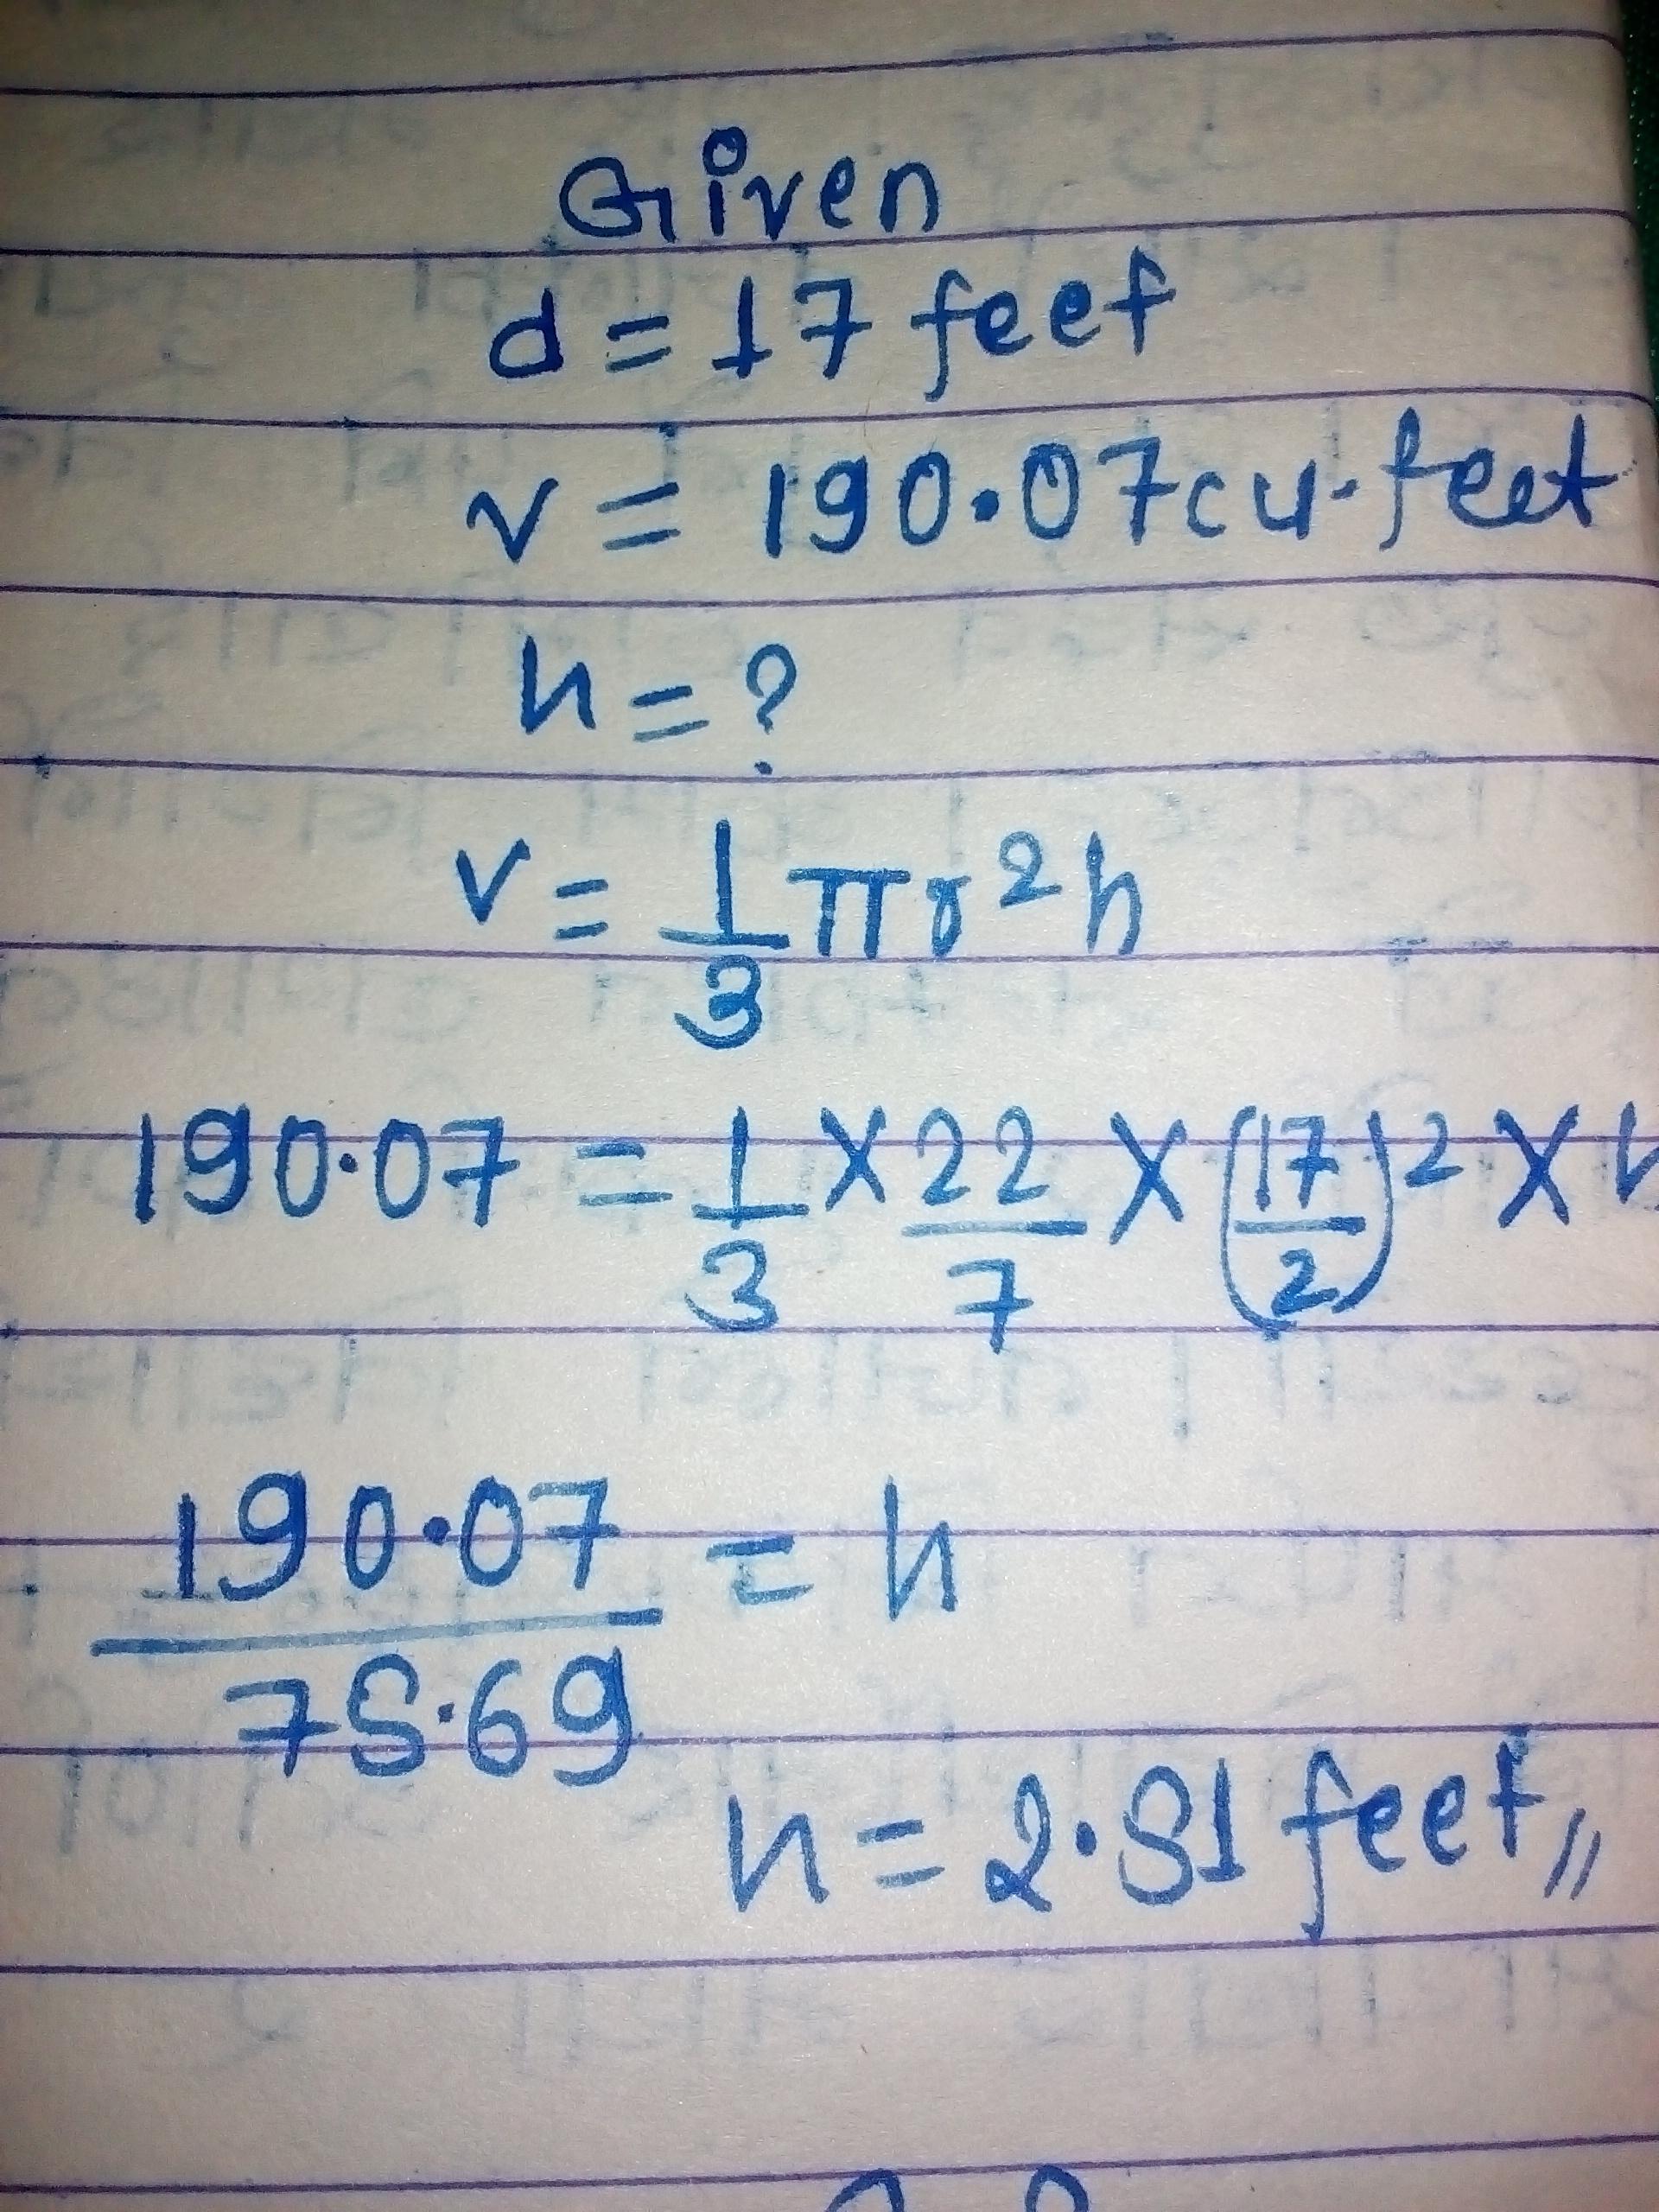 Given
d = 17 feet
v = 190.07 cu. feet
h = ?
v = 1/3 πr²h
190.07 = 1/3 × 22/7 × (17/2)² × h
190.07/75.69 = h
h = 2.51 feet,,